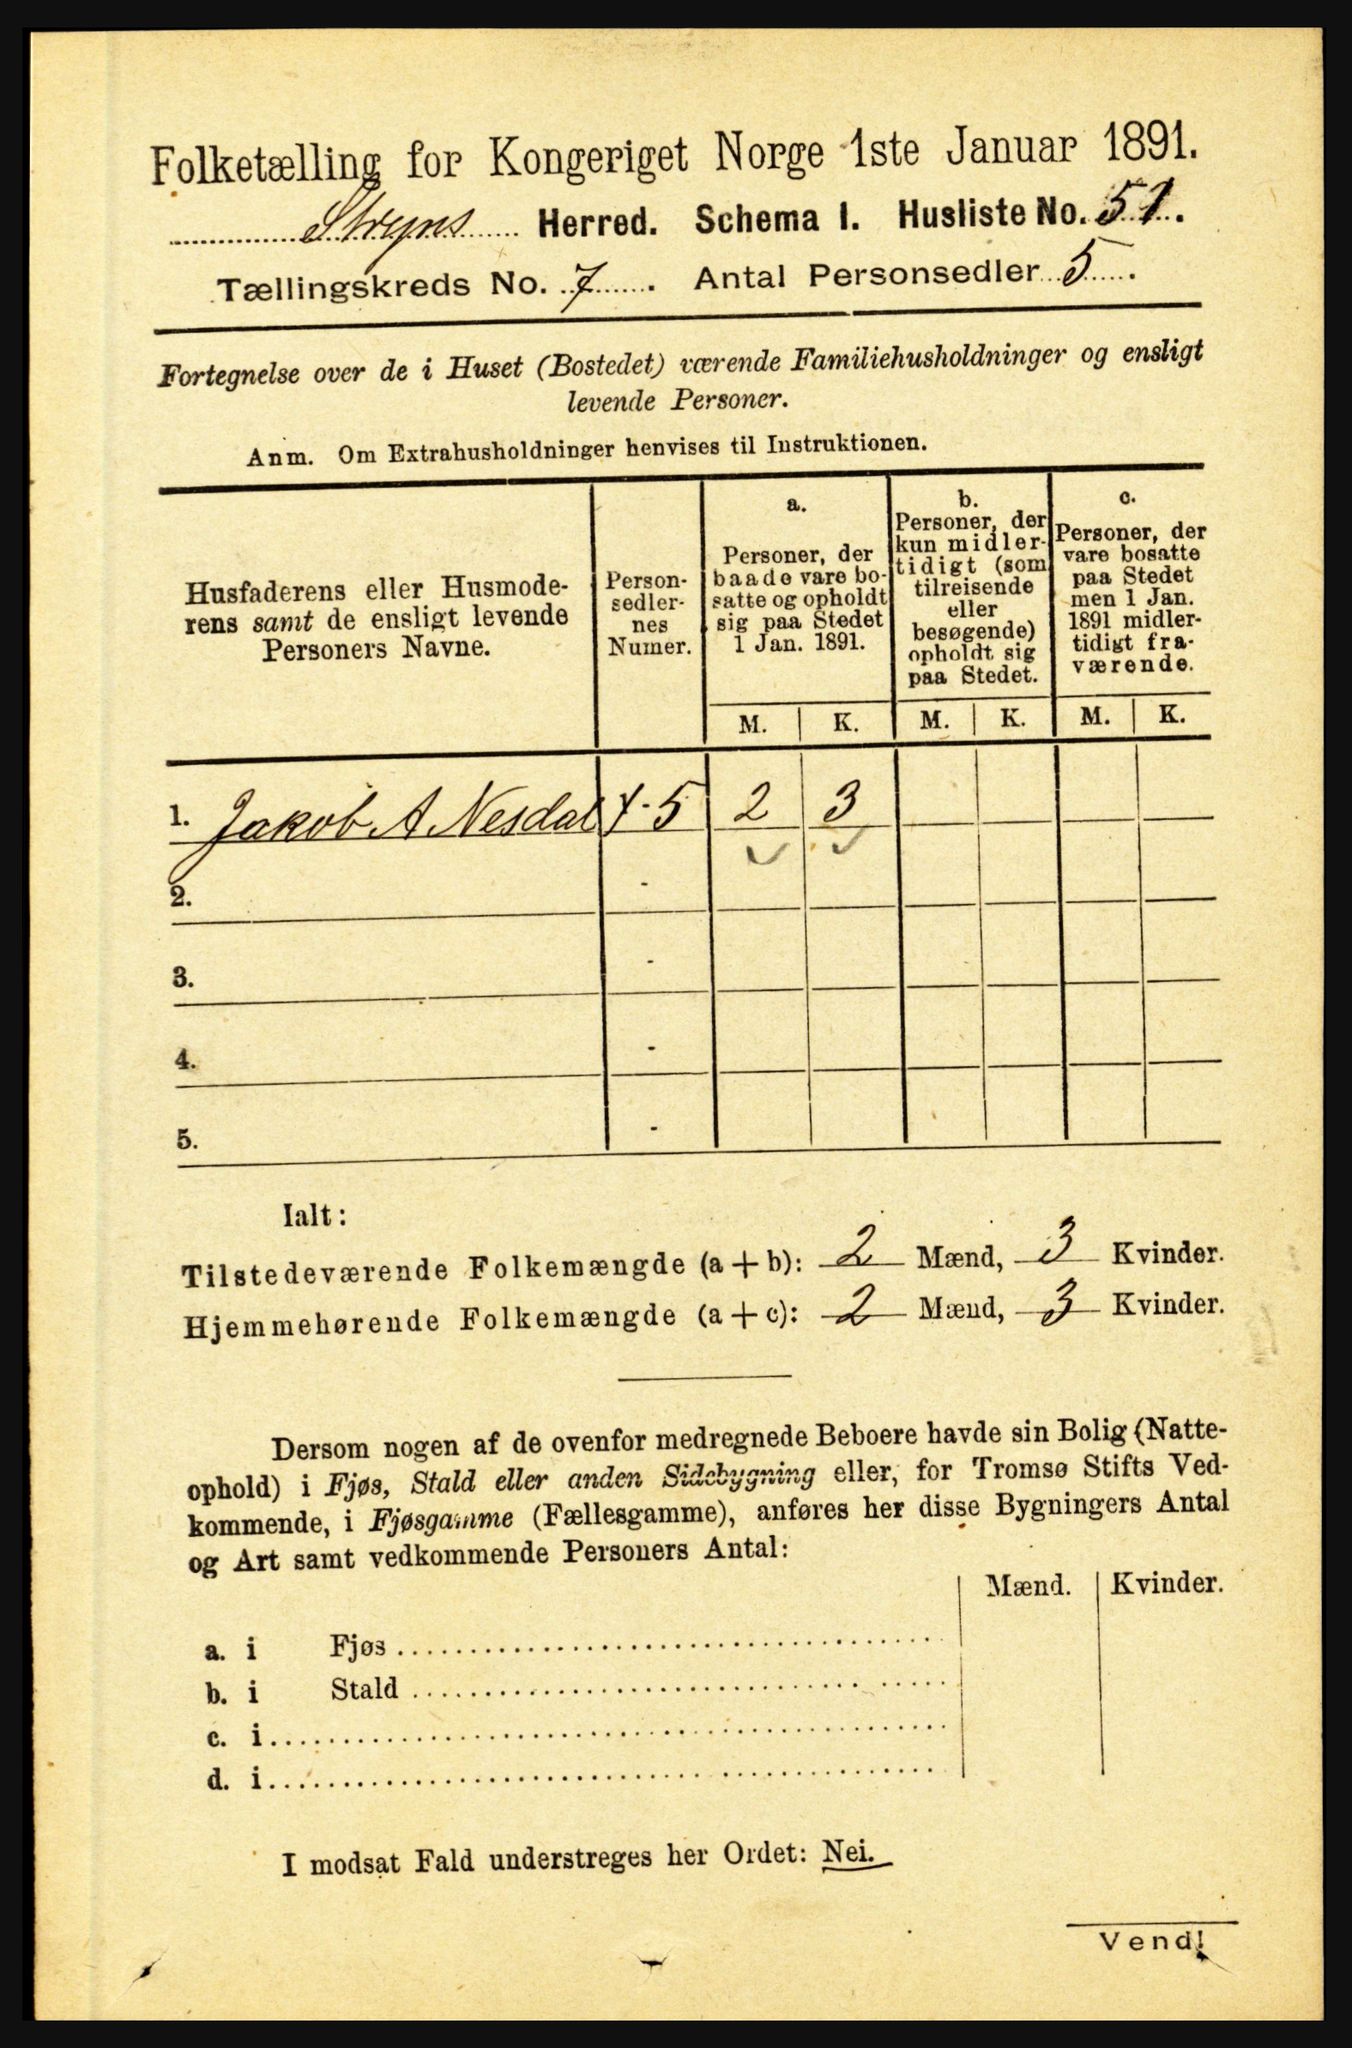 Folketælling for Kongeriget Norge 1ste Januar 1891.
Stryns Herred. Schema I. Husliste No. 51.
Tællingskreds No. 7. Antal Personsedler 5.
Fortegnelse over de i Huset (Bostedet) værende Familiehusholdninger og ensligt
levende Personer.
Anm. Om Extrahusholdninger henvises til Instruktionen.
Husfaderens eller Husmode-
rens samt de ensligt levende
Personers Navne.
Person-
sedler-
nes
Numer.
a.
Personer, der
baade vare bo-
satte og opholdt
sig paa Stedet
1 Jan. 1891.
b.
Personer, der
kun midler-
tidigt (som
tilreisende
eller
besøgende)
opholdt sig
paa Stedet.
c.
Personer, der
vare bosatte
paa Stedet
men 1 Jan.
1891 midler-
tidigt fra-
værende.
M. K. M. K. M. K.
1. Jakob A Nesdal 1-5 2 3
2. -
3. -
4. -
5. -
Ialt:
Tilstedeværende Folkemængde (a+b): 2 Mænd, 3 Kvinder.
Hjemmehørende Folkemængde (a+c): 2 Mænd, 3 Kvinder.
Dersom nogen af de ovenfor medregnede Beboere havde sin Bolig (Natte-
ophold) i Fjøs, Stald eller anden Sidebygning eller, for Tromsø Stifts Ved-
kommende, i Fjøsgamme (Fællesgamme), anføres her disse Bygningers Antal
og Art samt vedkommende Personers Antal:
Mænd. Kvinder.
a. i Fjøs
b. i Stald
c. i
d. i
I modsat Fald understreges her Ordet: Nei.
Vend!